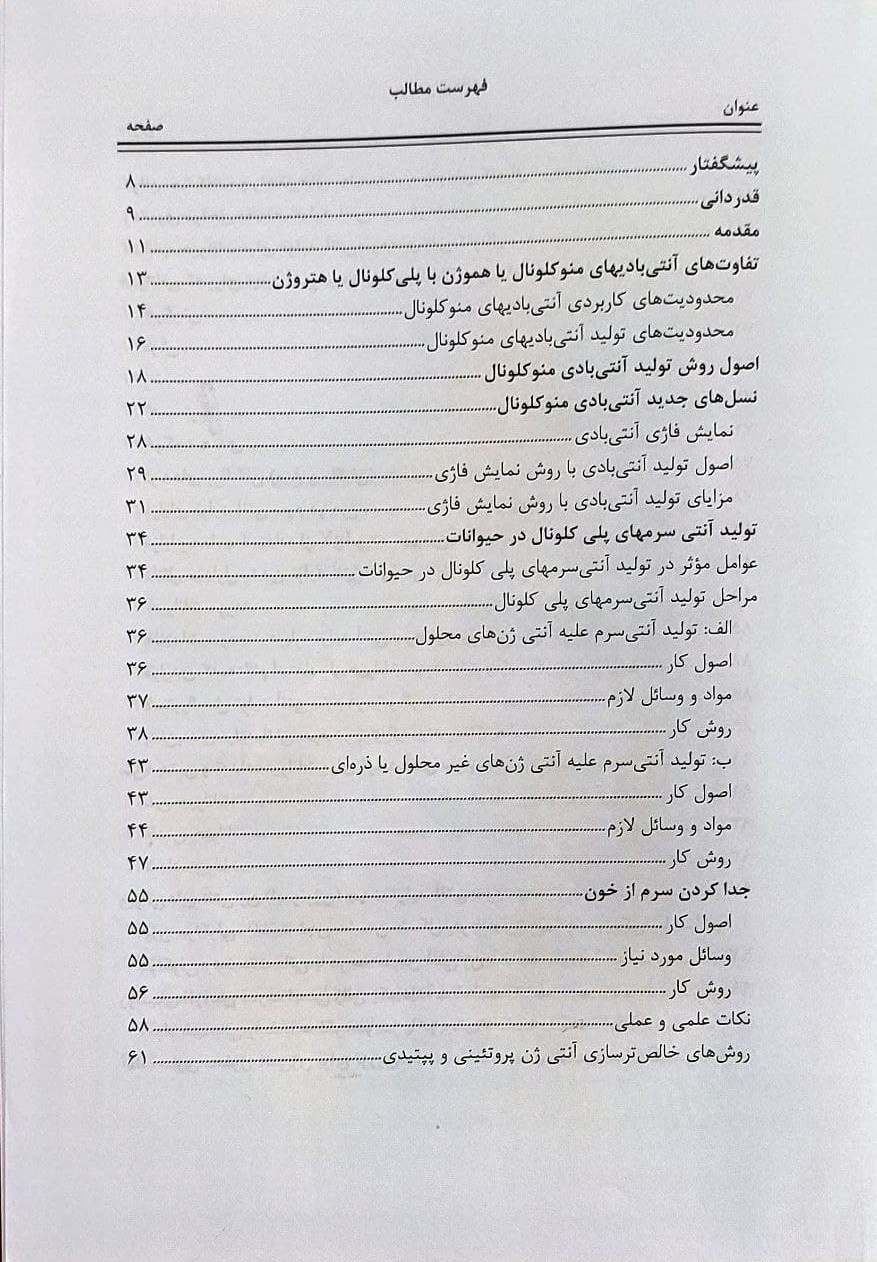 فهرست مطالب
عنوان صفحه
پیشگفتار ۸
قدردانی ۹
مقدمه ۱۱
تفاوت‌های آنتی‌بادیهای منوکلونال یا هموژن با پلی‌کلونال یا هتروژن ۱۳
محدودیت‌های کاربردی آنتی‌بادیهای منوکلونال ۱۴
محدودیت‌های تولید آنتی‌بادیهای منوکلونال ۱۶
اصول روش تولید آنتی‌بادی منوکلونال ۱۸
نسل‌های جدید آنتی‌بادی منوکلونال ۲۲
نمایش فاژی آنتی‌بادی ۲۸
اصول تولید آنتی‌بادی با روش نمایش فاژی ۲۹
مزایای تولید آنتی‌بادی با روش نمایش فاژی ۳۱
تولید آنتی سرمهای پلی کلونال در حیوانات ۳۴
عوامل مؤثر در تولید آنتی‌سرمهای پلی کلونال در حیوانات ۳۴
مراحل تولید آنتی‌سرمهای پلی کلونال ۳۶
الف: تولید آنتی‌سرم علیه آنتی ژن‌های محلول ۳۶
اصول کار ۳۶
مواد و وسائل لازم ۳۷
روش کار ۳۸
ب: تولید آنتی‌سرم علیه آنتی ژن‌های غیر محلول یا ذره‌ای ۴۳
اصول کار ۴۳
مواد و وسائل لازم ۴۴
روش کار ۴۷
جدا کردن سرم از خون ۵۵
اصول کار ۵۵
وسائل مورد نیاز ۵۵
روش کار ۵۶
نکات علمی و عملی ۵۸
روش‌های خالص‌ترسازی آنتی ژن پروتئینی و پپتیدی ۶۱